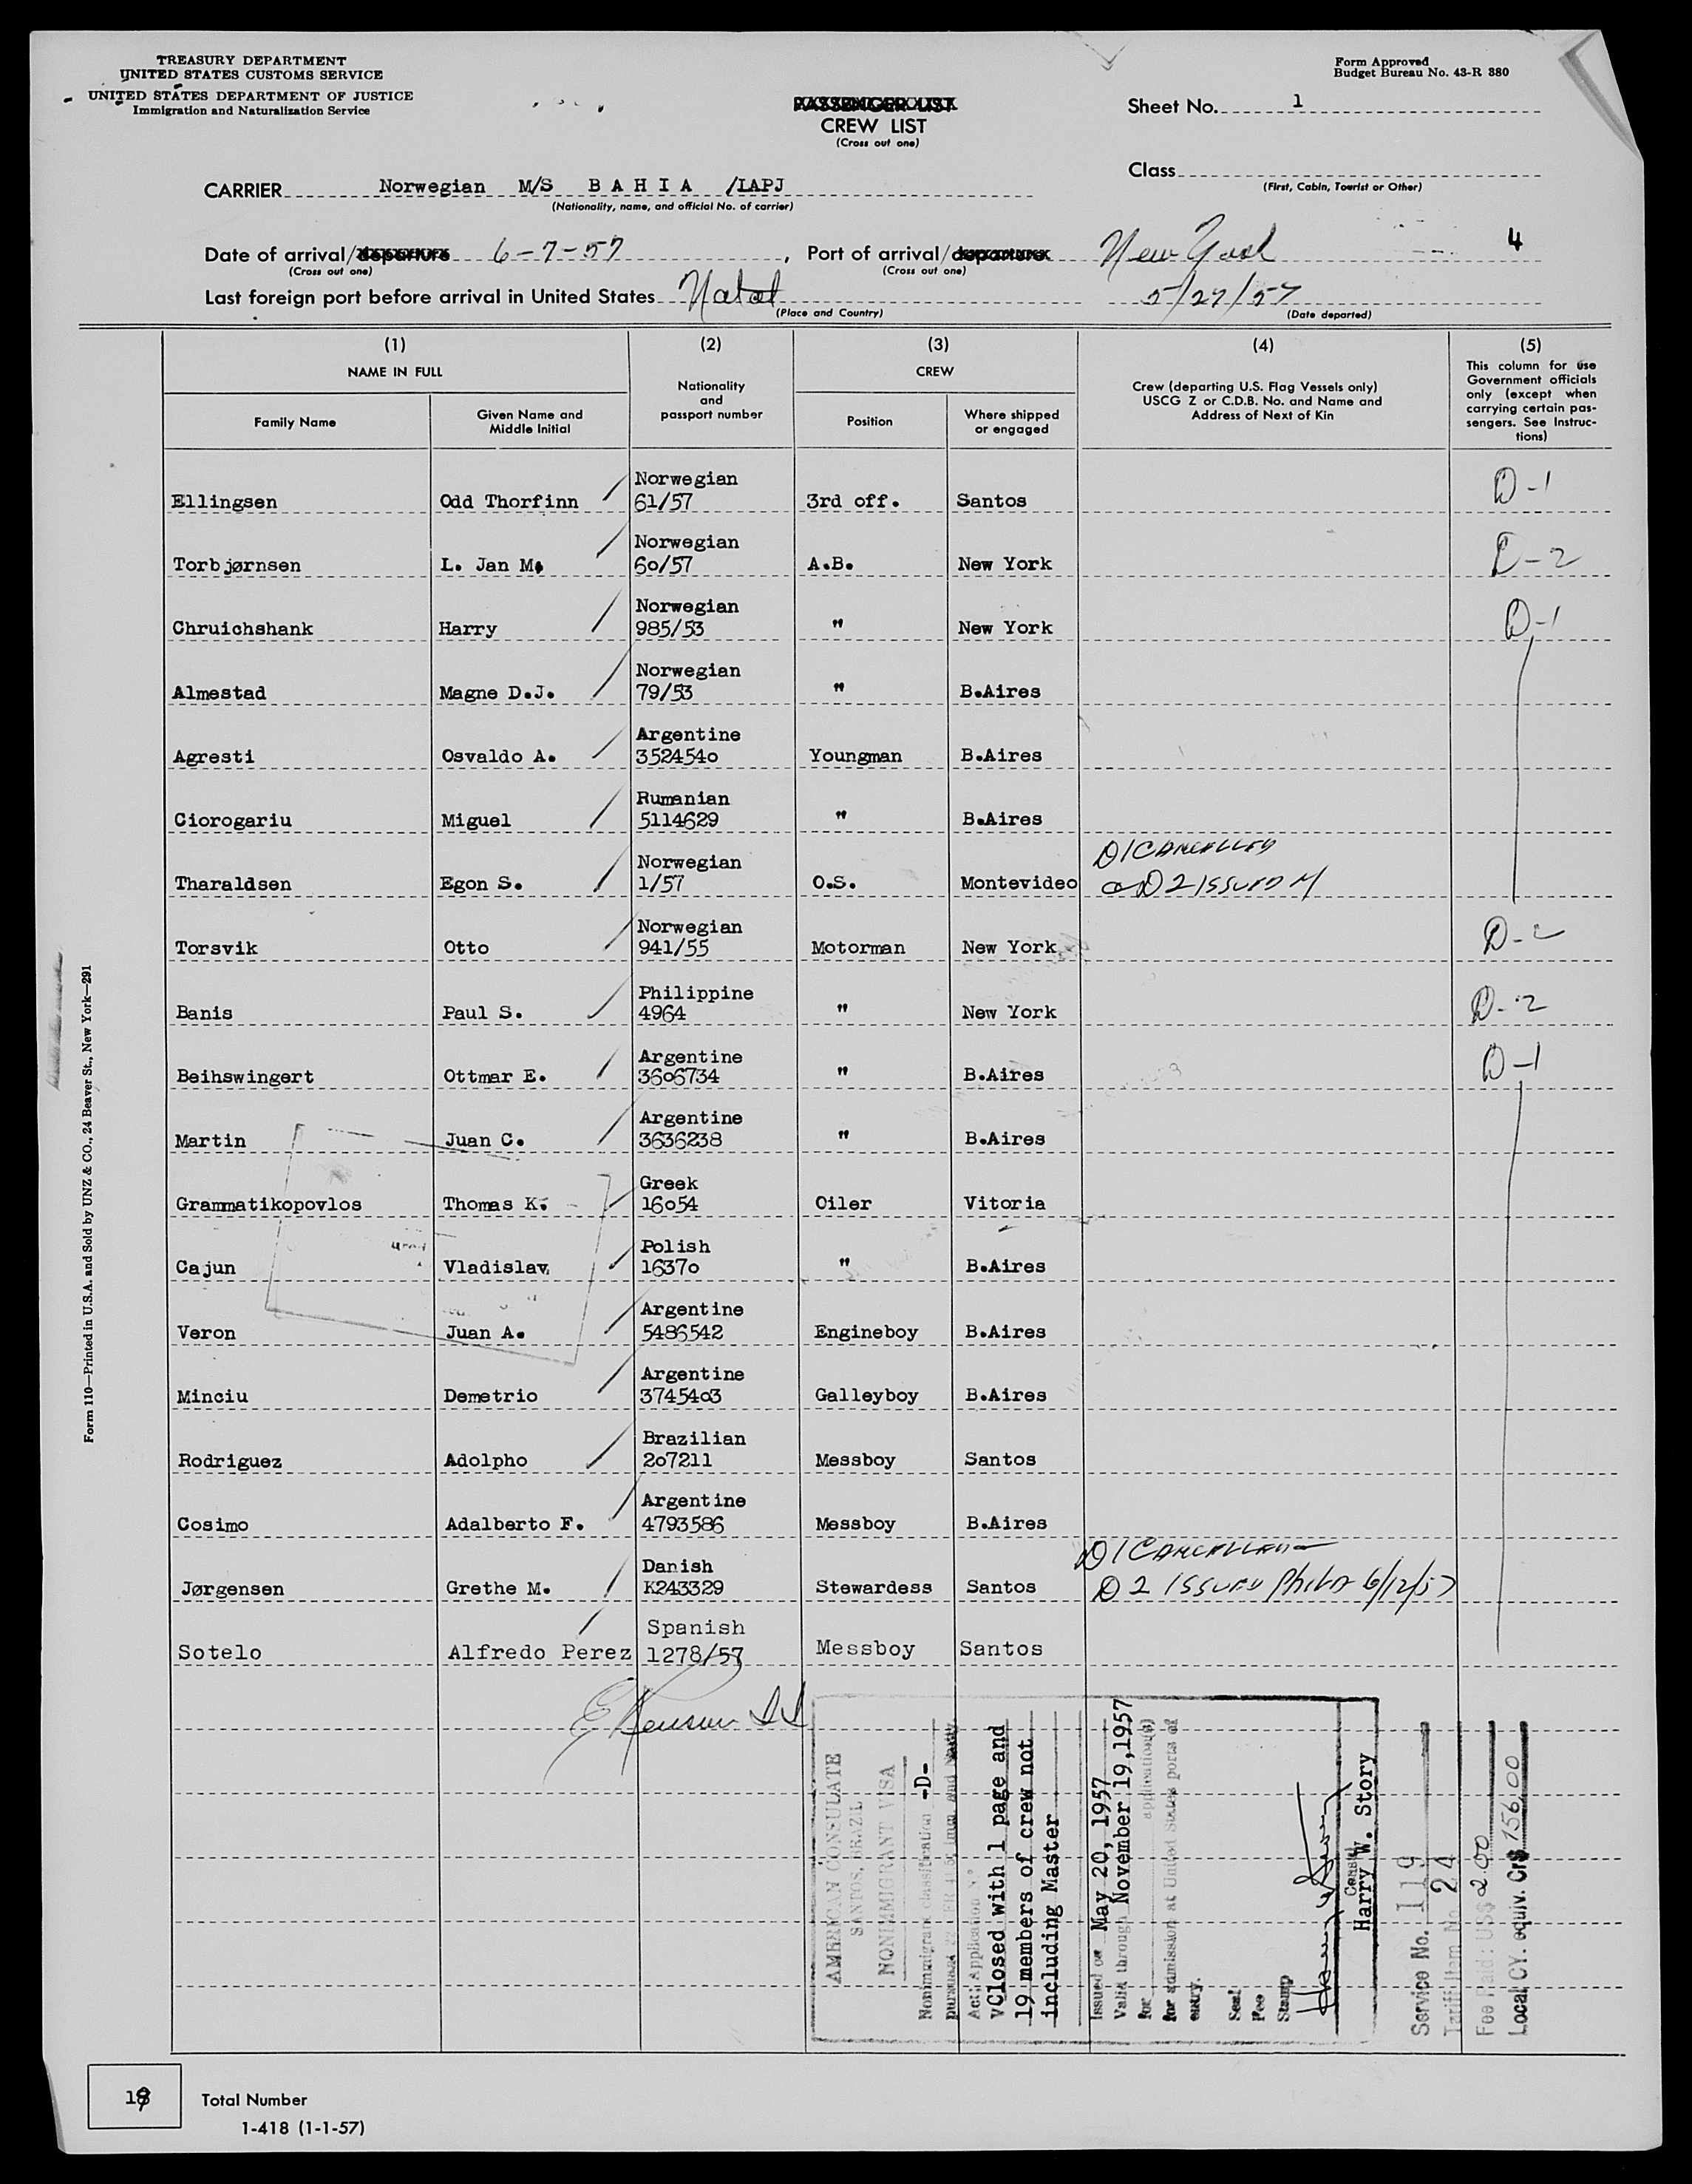 TREASURY DEPARTMENT
UNITED STATES CUSTOMS SERVICE
UNITED STATES DEPARTMENT OF JUSTICE
Immigration and Naturalization Service
Form Approved
Budget Bureau No. 43-R 380
PASSENGER LIST
CREW LIST
(Cross out one)
Sheet No. 1
Class
(First, Cabin, Tourist or Other)
CARRIER Norwegian M/S B A H I A /LAPJ
(Nationality, name, and official No. of carrier)
Date of arrival/departure 6-7-57, Port of arrival/departure New York 4
(Cross out one) (Cross out one)
Last foreign port before arrival in United States Natal 5/27/57
(Place and Country) (Date departed)
(1) (2) (3) (4) (5)
NAME IN FULL
Family Name
Given Name and Middle Initial
Nationality and passport number
CREW
Position
Where shipped or engaged
Crew (departing U.S. Flag Vessels only)
USCG Z or C.D.B. No. and Name and
Address of Next of Kin
This column for use
Government officials
only (except when
carrying certain pas-
sengers. See Instruc-
tions)
Norwegian
Ellingsen Odd Thorfinn 61/57 3rd off. Santos D-1
Norwegian
Torbjørnsen L. Jan M. 60/57 A.B. New York D-2
Norwegian
Chruichshank Harry 985/53 " New York D-1
Norwegian
Almestad Magne D.J. 79/53 " B.Aires
Argentine
Agresti Osvaldo A. 3524540 Youngman B.Aires
Rumanian
Ciorogariu Miguel 5114629 " B.Aires
Norwegian D1 CANCELLED
Tharaldsen Egon S. 1/57 O.S. Montevideo D2 ISSUED
Norwegian
Torsvik Otto 941/55 Motorman New York D-2
Philippine
Banis Paul S. 4964 " New York D-2
Argentine
Beihswingert Ottmar E. 3606734 " B.Aires D-1
Argentine
Martin Juan C. 3636238 " B.Aires
Greek
Grammatikopovlos Thomas K. 16054 Oiler Vitoria
Polish
Cajun Vladislav 16370 " B.Aires
Argentine
Veron Juan A. 5486542 Engineboy B.Aires
Argentine
Minciu Demetrio 3745403 Galleyboy B.Aires
Brazilian
Rodriguez Adolpho 207211 Messboy Santos
Argentine
Cosimo Adalberto F. 4793586 Messboy B.Aires
Danish D1 CANCELLED
Jørgensen Grethe M. K243329 Stewardess Santos D2 ISSUED Phila 6/12/57
Spanish
Sotelo Alfredo Perez 1278/57 Messboy Santos
AMERICAN CONSULATE
SANTOS, BRAZIL
NONIMMIGRANT VISA
Nonimmigrant classification -D-
Act; Application
Closed with 1 page and
19 members of crew not
including Master
Issued on May 20, 1957
Valid through November 19, 1957
for application(s)
for admission at United States ports of
entry.
Seal
Fee
Stamp
Consul
Harry W. Story
Service No. 119
Tariff Item No. 24
Fee Paid: US$ 2.00
Local CY. equiv. Cr$ 156,00
Form 110—Printed in U.S.A. and Sold by UNZ & CO., 24 Beaver St., New York—291
19 Total Number
1-418 (1-1-57)